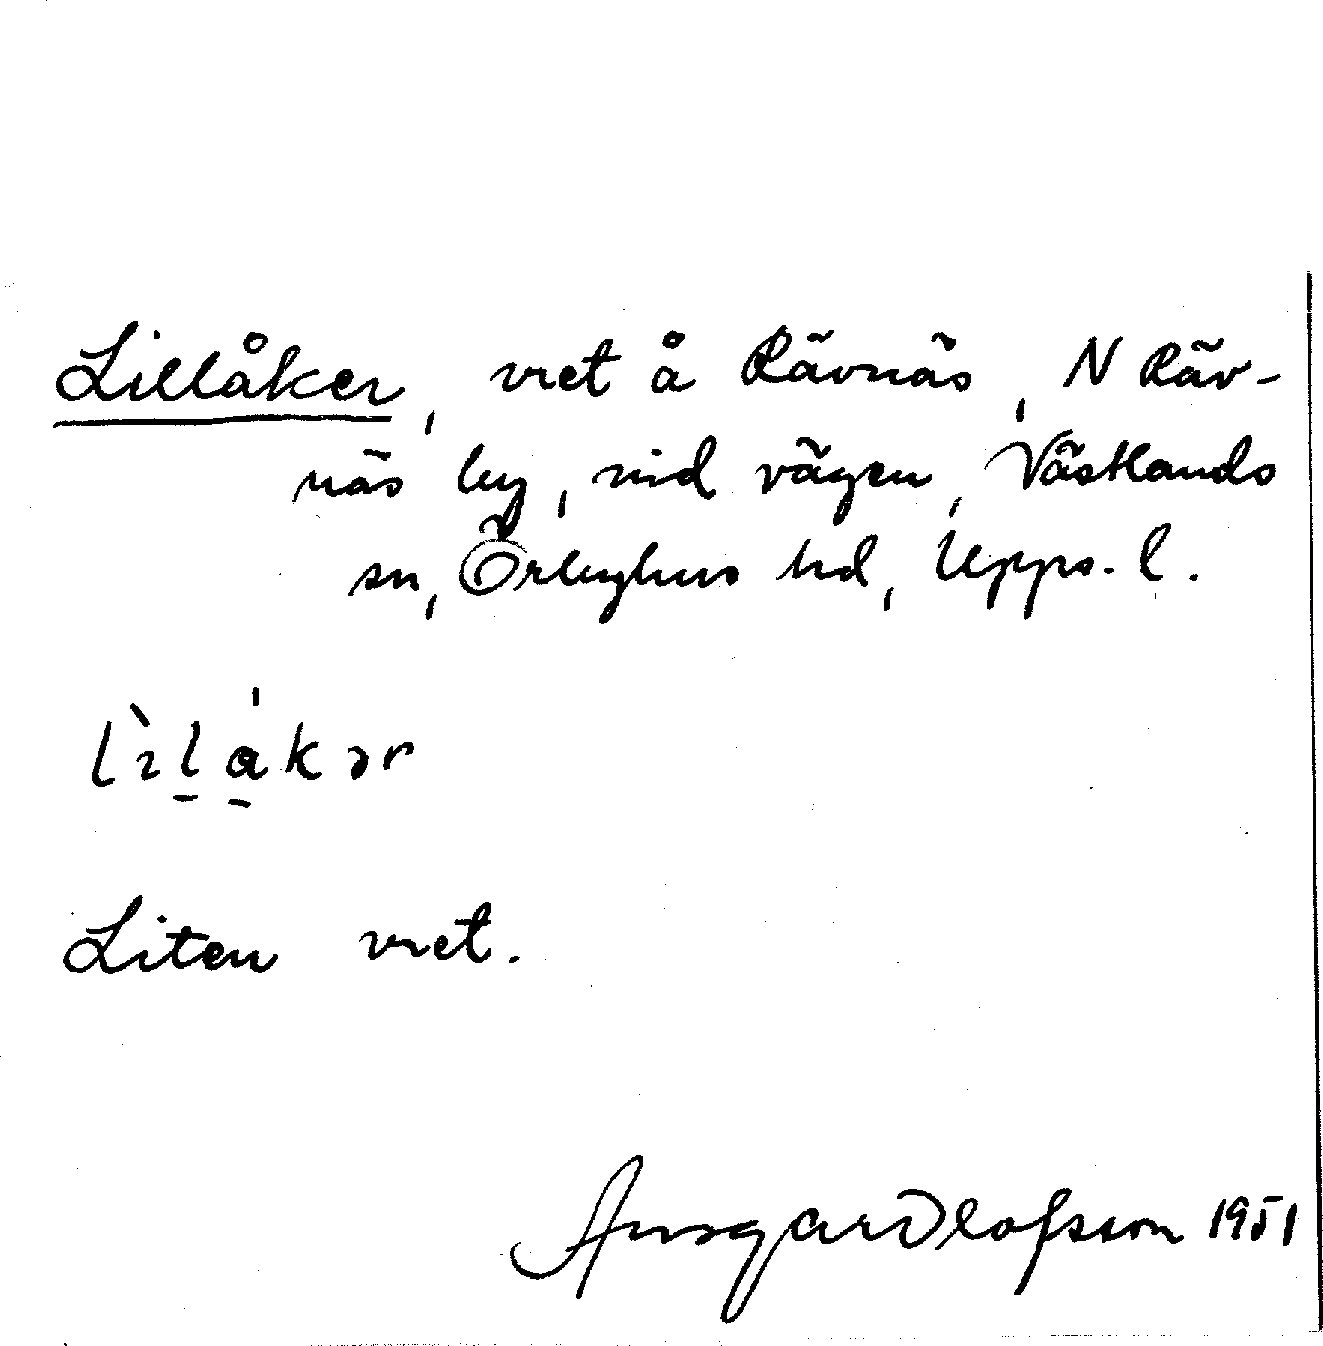 Lillåker, vret å Rävnäs, N Räv-
näs by, vid vägen, Västlands
sn, Örbyhus hd, Upps. l.
lìlå̱kər
Liten vret.
Ansgar Olofsson 1951